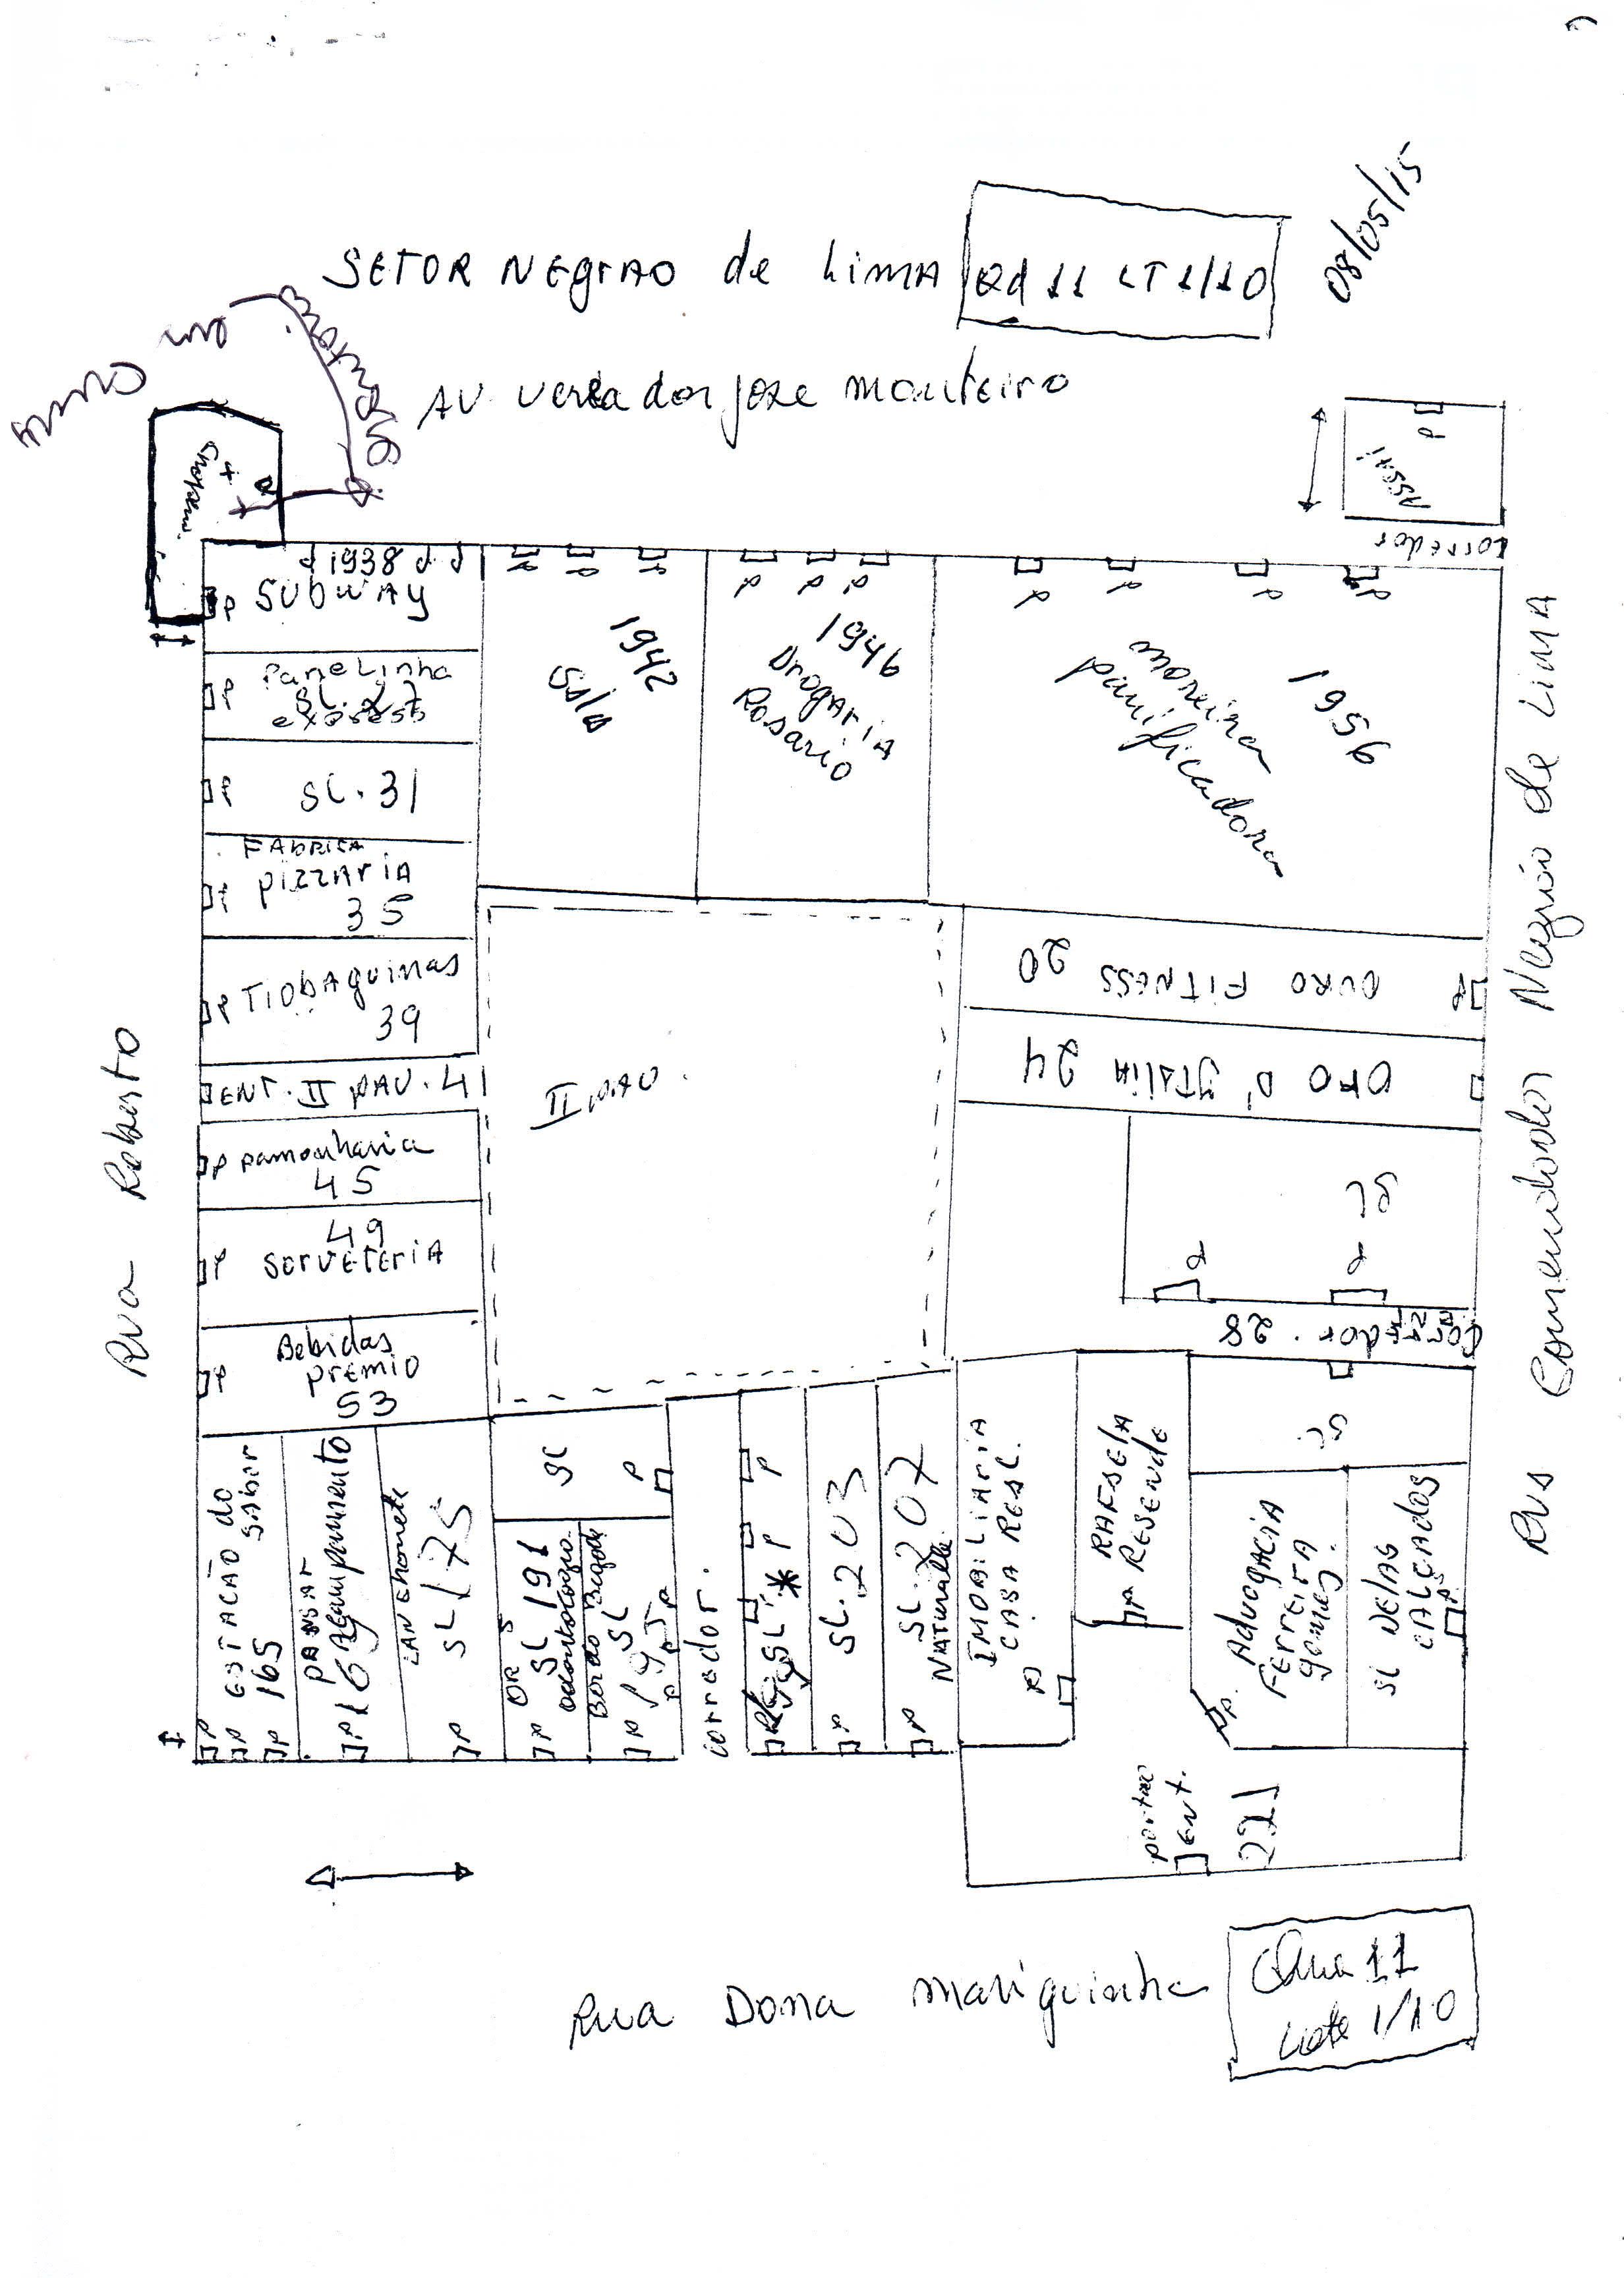 SETOR NEGrAO de LimA
Qd 11 LT 1/10
08/05/15
AV. Vereador jose monteiro
Assai
P
corredor
1938
SUbwAy
PaneLinha
SL. 27
express
SL. 31
FAbricA
pizzAriA
35
TIObAquinas
39
ENT. II pAV. 41
pamonharia
45
49
sorveteriA
Bebidas
premio
53
1942
Sala
1946
DrogAriA
Rosario
1956
moreira
panificadora
OURO FiTNESS 20
OrO D' ITAliA 24
SL
Corredor. 28
II PAV.
ESTAÇÃO do
SAber
165
LANchonete
SL 175
DRS
SL 191
odontologia
SL
corredor.
SL
SL. 203
SL. 207
NATuralle
IMObiLiARiA
CASA REAL.
RAFAElA
RESENdE
SL
AdvogAciA
FerreirA
gomes.
SL VElAS
CALÇAdos
portão
ENT.
221
Rua Roberto
Rua Comendador Negrão de LimA
Rua Dona mariquinha
Qua 11
Lote 1/10